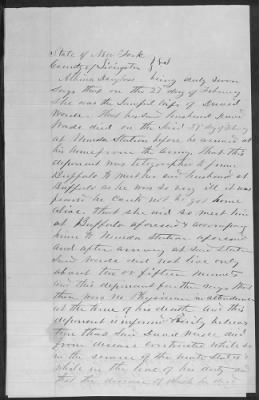 State of New York
County of Livingston } SS
being duly sworn
says that on the 22 day of February
she was the lawful wife of David
Wade that her husband David
Wade died on the said 22 day of Feby
at Nunda Station before he arrived at
his home from the army that this
deponent was telegraphed to from
Buffalo to meet her said husband at
Buffalo as he was so very ill it was
feared he could not be got home
alive that she did so meet him
at Buffalo aforesaid & accompany
him to Nunda Station aforesaid
and after arriving at said Station
said Wade did not live only
about ten or fifteen minutes
and this deponent further says that
there was no Physician in attendance
at the time of his death and this
deponent is informed & verily believes
true that said David Wade died
from disease contracted while so
in the service of the United States &
while in the line of his duty and
that the disease of which he died